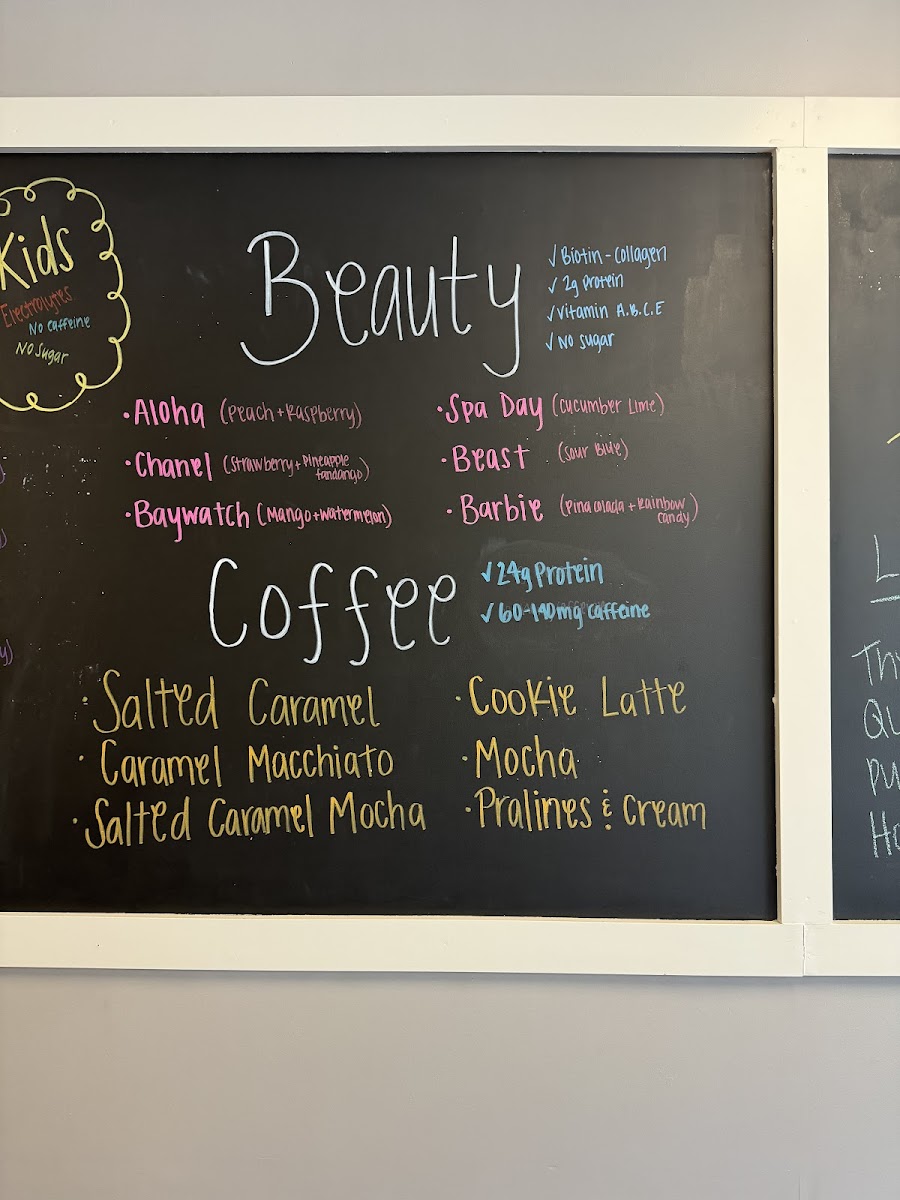 Kids
Electrolytes
No caffeine
No Sugar
Beauty
✓Biotin - Collagen
✓ 2g Protein
✓Vitamin A.B.C.E
✓ No sugar
• Aloha (Peach + Raspberry)
• Chanel (Strawberry + Pineapple
fandango)
• Baywatch (Mango + watermelon)
• Spa Day (Cucumber Lime)
• Beast (Sour Blue)
• Barbie (Pina colada + Rainbow
candy)
Coffee
✓24g Protein
✓60-140mg caffeine
• Salted Caramel
• Caramel Macchiato
• Salted Caramel Mocha
• Cookie Latte
• Mocha
• Pralines & Cream